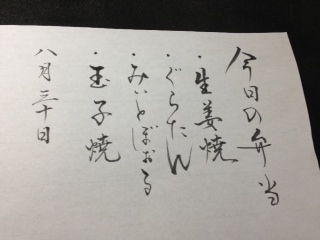 今日の弁当
・生姜焼
・ぐらたん
・みいとぼおる
・玉子焼
八月三十日